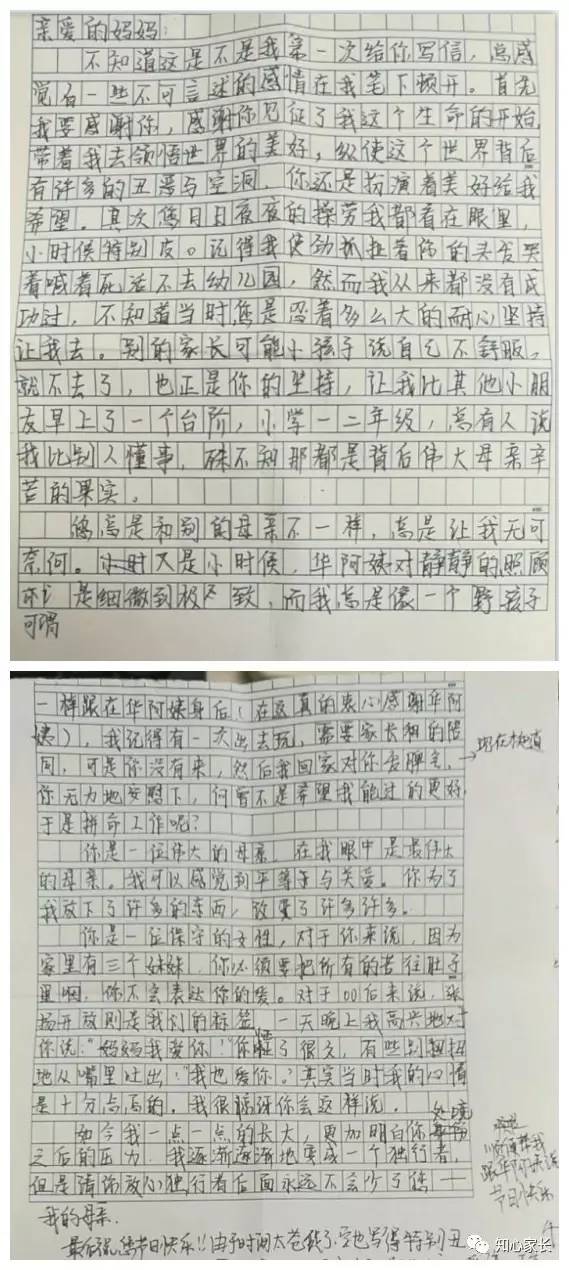 亲爱的妈妈:
不知道这是不是我第一次给你写信,总感
觉有一些不可言述的感情在我笔下顿开。首先
我要感谢你,感谢你见证了我这个生命的开始,
带着我去领悟世界的美好,纵使这个世界背后
有许多的丑恶与空洞,你还是扮演着美好给我
希望。其次您日日夜夜的操劳我都看在眼里,
小时候特别皮。记得我使劲抓扯着你的头发哭
着喊着死活不去幼儿园,然而我从来都没有成
功过,不知道当时您是忍着多么大的耐心坚持
让我去。别的家长可能小孩子说自己不舒服,
就不去了,也正是你的坚持,让我比其他小朋
友早上了一个台阶,小学一二年级,总有人说
我比别人懂事,殊不知那都是背后伟大母亲辛
苦的果实。
您总是和别的母亲不一样,总是让我无可
奈何。小时又是小时候,华阿姨对静静的照顾
是细微到极致,而我总是像一个野孩子
可谓
一样跟在华阿姨身后(在这真的衷心感谢华阿
姨),我记得有一次出去玩,需要家长相的陪
同,可是你没有来,然后我回家对你发脾气,
你无力地安慰下,何曾不是希望我能过的更好,
于是拼命工作呢?
你是一位伟大的母亲,在我眼中是最伟大
的母亲。我可以感觉到平等于与关爱。你为了
我放下了许多的东西,改变了许多许多。
你是一位保守的女性,对于你来说,因为
家里有三个妹妹,你必须要把所有的苦往肚子
里咽,你不会表达你的爱。对于00后来说,张
扬开放则是我们的标签,一天晚上我高兴地对
你说:"妈妈我爱你!"你愣了很久,有些别扭
地从嘴里吐出:"我也爱你。"其实当时我的心情
是十分高的。我很惊讶你会这样说。
如今我一点一点的长大,更加明白你处境
之后的压力,我逐渐逐渐地变成一个独行者,
但是请你放心独行者后面永远不会少了您——
我的母亲.
最后祝您节日快乐!!由于时间太仓促了,字也写得特别丑
顺便帮我
跟华阿姨说
节日快乐
知心家长